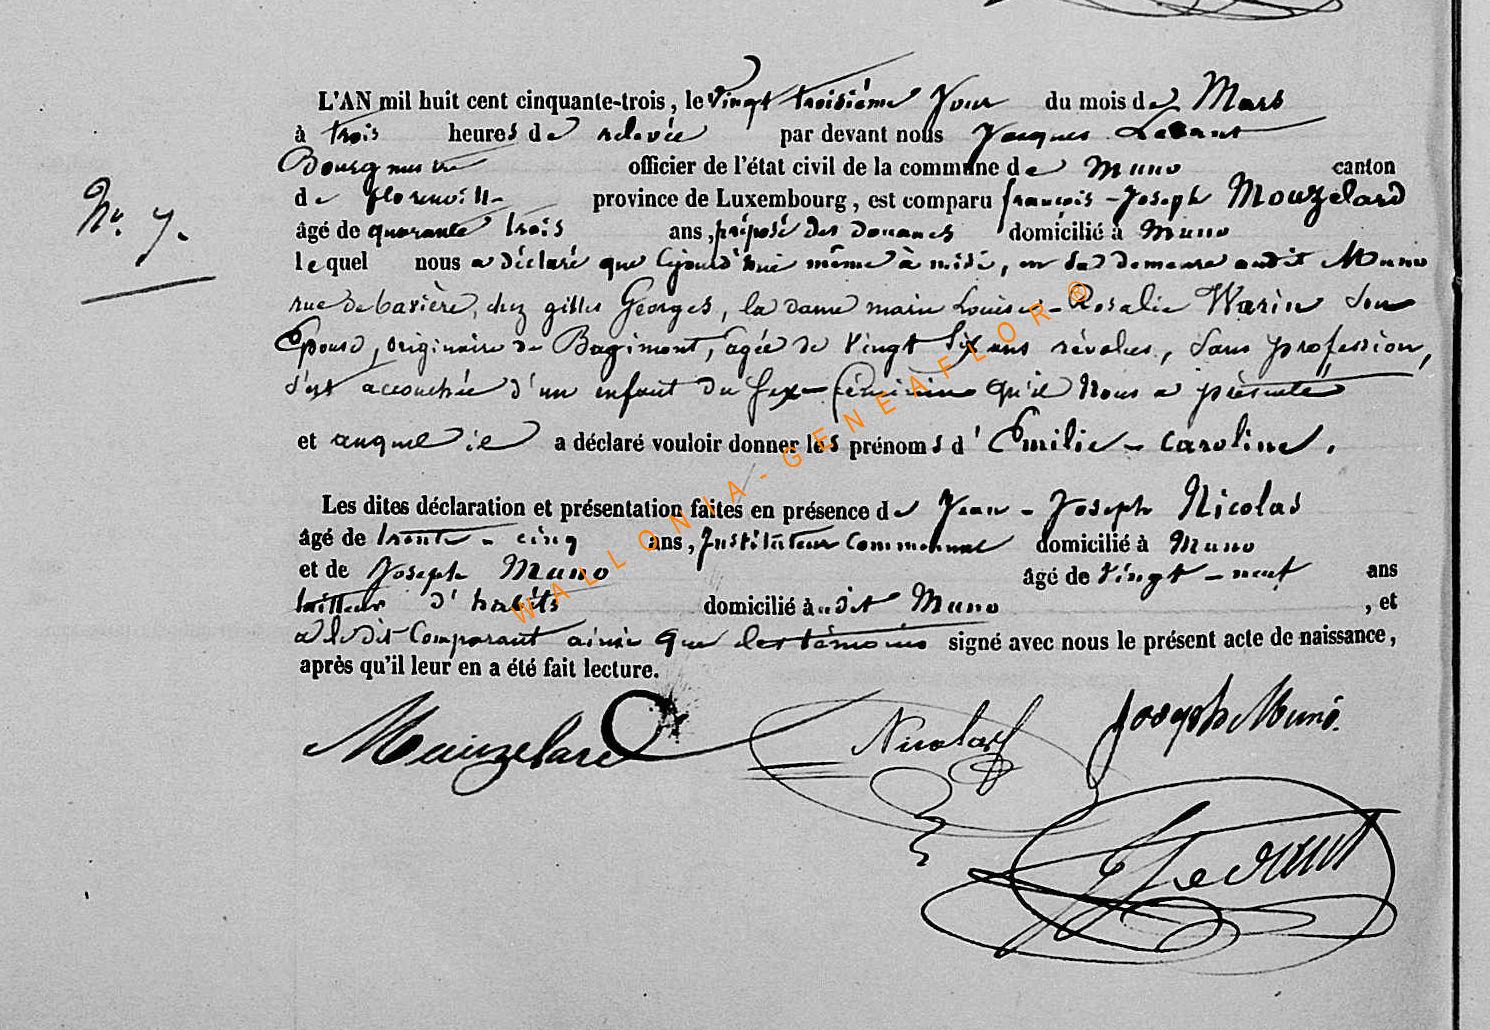 L'AN mil huit cent cinquante-trois, le vingt troisième jour du mois de Mars
à trois heures de relevée par devant nous Jacques
Bourgmestre officier de l'état civil de la commune de Muno canton
de florenville province de Luxembourg, est comparu françois-Joseph Mouzelard
âgé de quarante trois ans, préposé des douanes domicilié à Muno
lequel nous a déclaré que cejourd'hui même à midi, en sa demeure audit Muno
rue de chez gilles Georges, la dame marie Louise-Rosalie Warin son
Epouse, originaire de Bagimont, agée de vingt six ans révolus, sans profession,
s'est accouchée d'un enfant du sexe féminin qu'il Nous a présenté
et auquel il a déclaré vouloir donner les prénoms d'Emilie-Caroline.
Les dites déclaration et présentation faites en présence de Jean-Joseph Nicolas
âgé de trente-cinq ans, Instituteur Communal domicilié à Muno
et de Joseph Muno âgé de vingt-neuf ans
tailleur d'habits domicilié à udit Muno , et
a le dit Comparant ainsi que les témoins signé avec nous le présent acte de naissance,
après qu'il leur en a été fait lecture.
N° 7.
Mouzelard Nicolas Joseph Muno
WALLONIA-GENEAFLOR ®